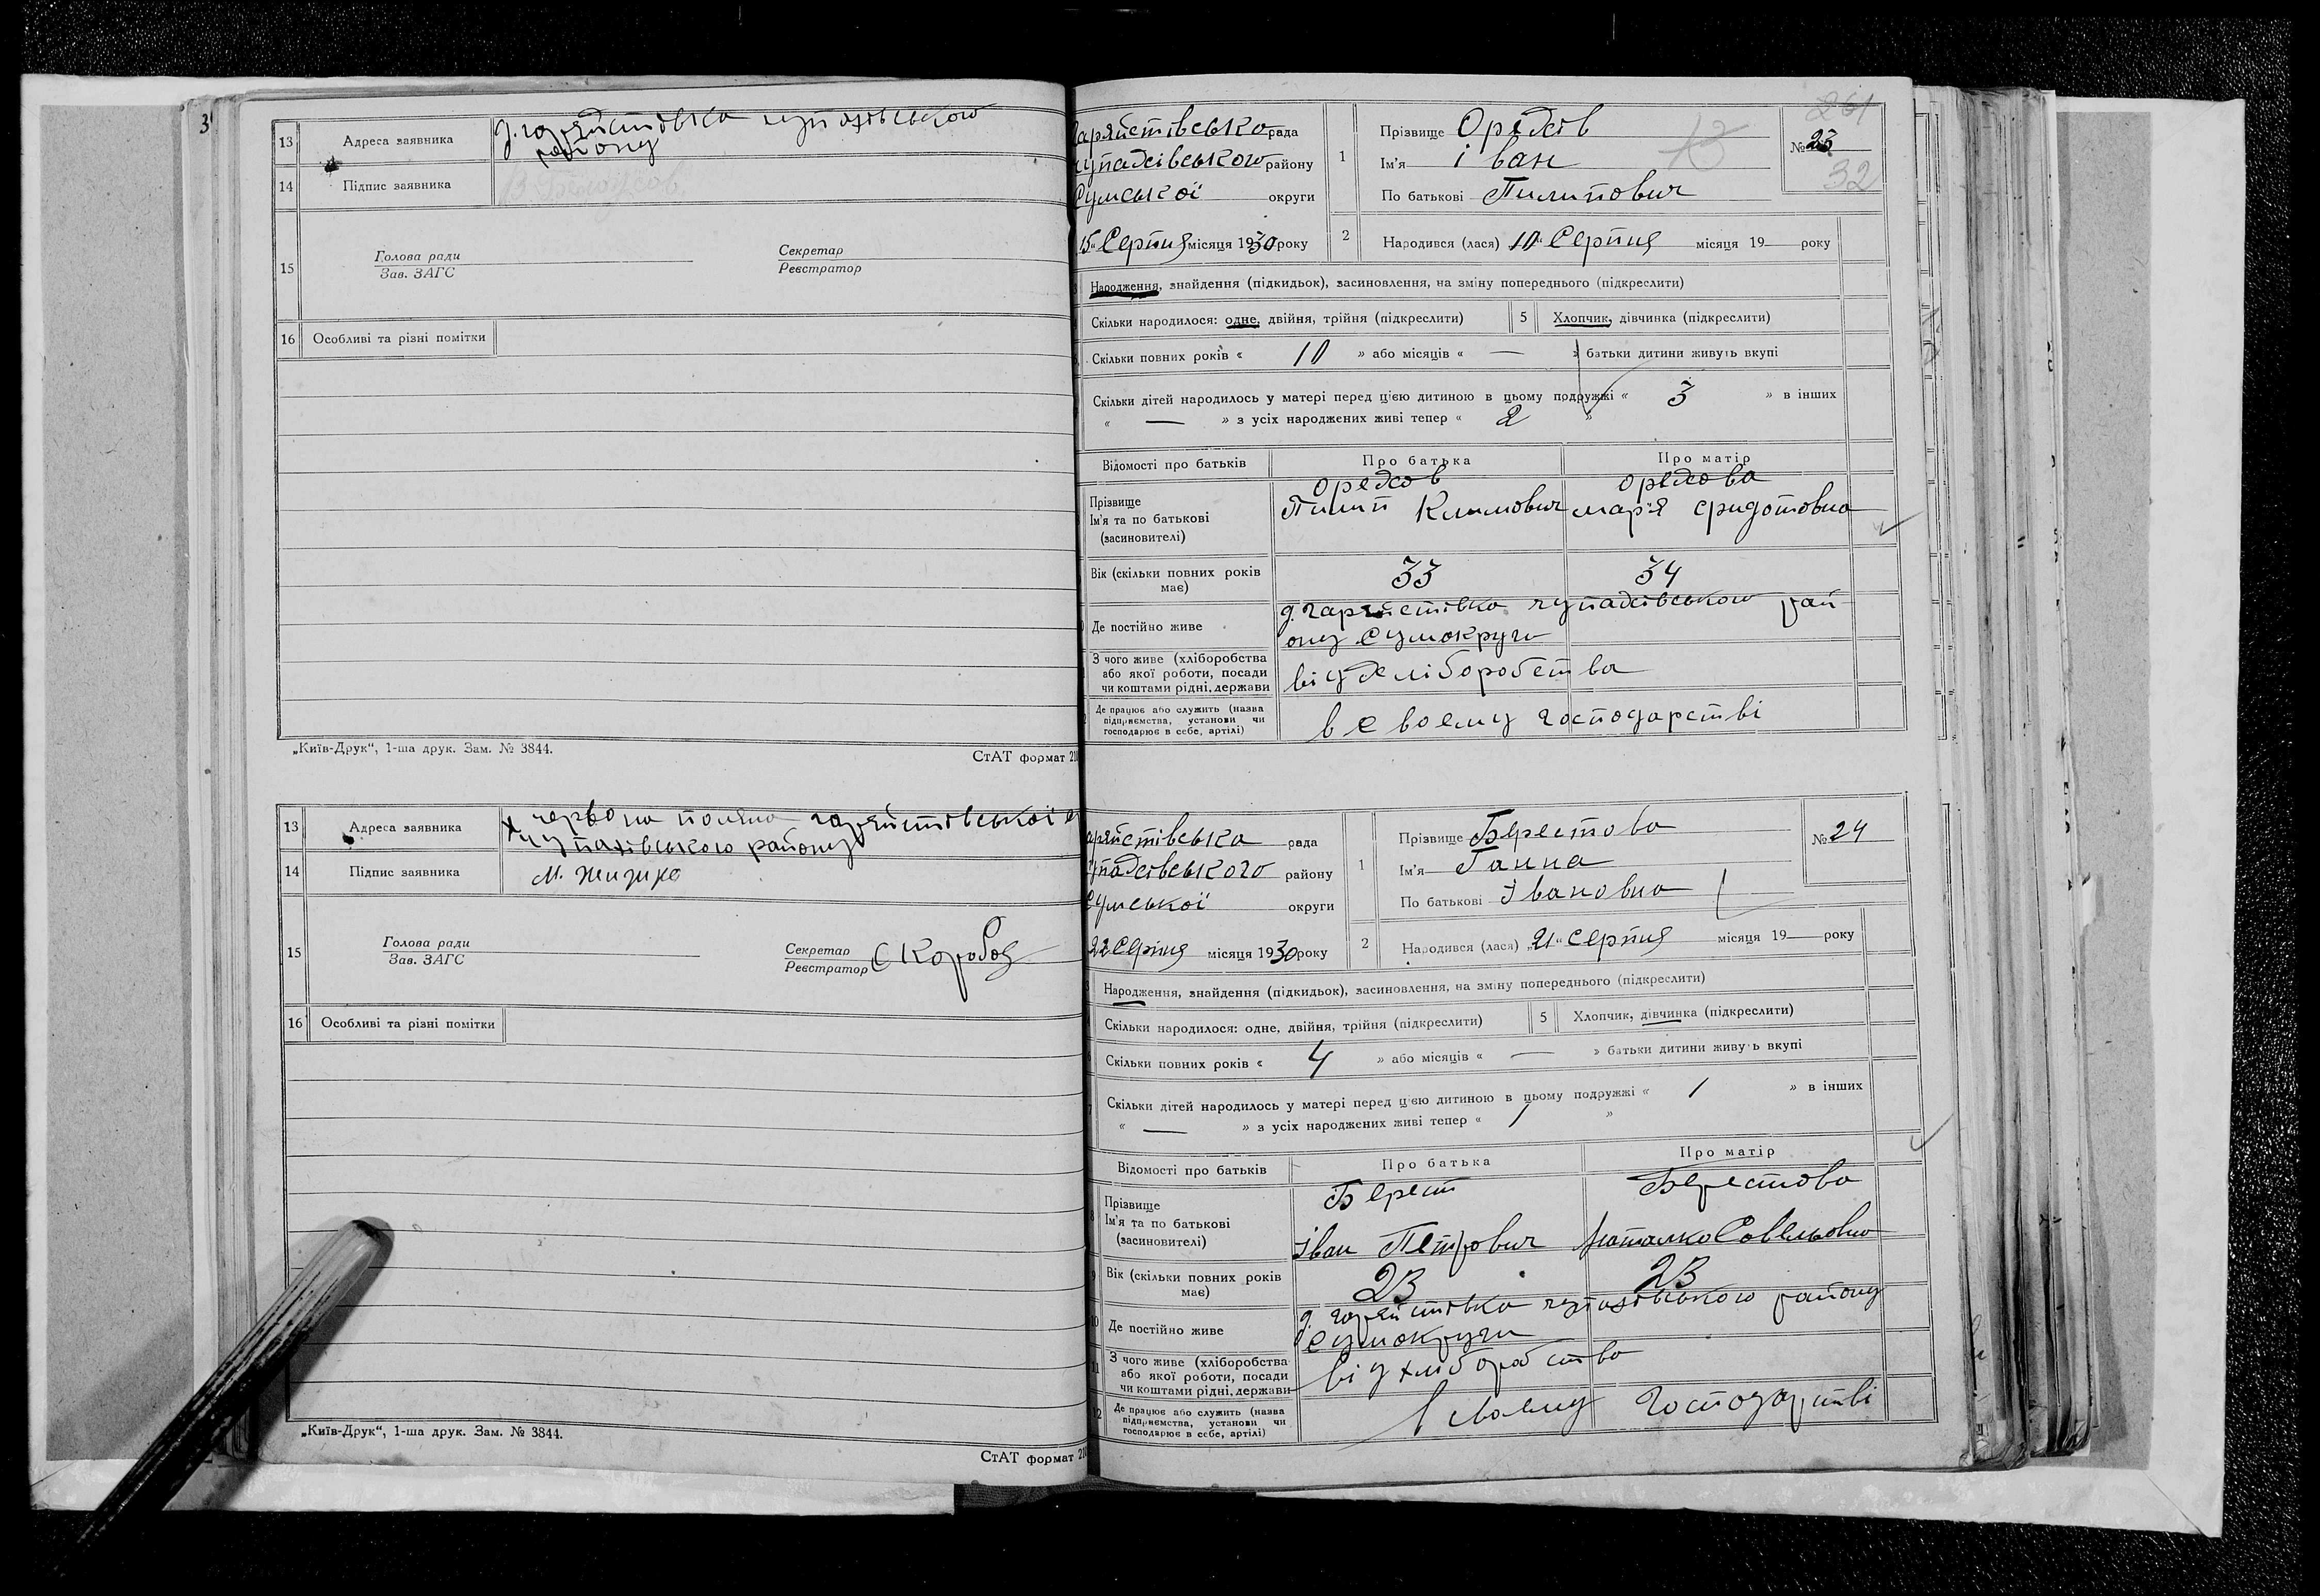 3
13 Адреса заявника д. гаряйстівка чупахівського
району
14 Підпис заявника
15 Голова ради
Зав. ЗАГС
Секретар
Реєстратор
16 Особливі та різні помітки
„Київ-Друк“, 1-ша друк. Зам. № 3844.
СтАТ формат 210
13 Адреса заявника х червона поляна гаряйстівської
чупахівського району
14 Підпис заявника М. Жидко
15 Голова ради
Зав. ЗАГС
Секретар
Реєстратор
16 Особливі та різні помітки
„Київ-Друк“, 1-ша друк. Зам. № 3844.
СтАТ формат 210
261
№ 23
32
гаряйстівсько рада
чупахівського району
Сумської округи
15 Серпня місяця 1930 року
1 Прізвище Оріхів
Ім'я іван
По батькові Пилипович
2 Народився (лася) 10 Серпня місяця 19 — року
Народження, знайдення (підкидьок), засиновлення, на зміну попереднього (підкреслити)
Скільки народилося: одне, двійня, трійня (підкреслити) 5 Хлопчик, дівчинка (підкреслити)
Скільки повних років « 10 » або місяців « — » батьки дитини живуть вкупі
Скільки дітей народилось у матері перед цією дитиною в цьому подружжі « 3 » в інших
« — » з усіх народжених живі тепер « 2 »
Відомості про батьків Про батька Про матір
Прізвище Орехов Орехова
Ім'я та по батькові Пилип Климович марія
(засиновителі)
Вік (скільки повних років має) 33 34
Де постійно живе д. гаряйстівка чупахівського рай
ону Сумокруги
З чого живе (хліборобства
або якої роботи, посади
чи коштами рідні, держави від хліборобства
Де працює або служить (назва
підприємства, установи чи
господарює в себе, артілі) в своему господарстві
№ 24
гаряйстівська рада
чупахівського району
Сумської округи
22 Серпня місяця 1930 року
1 Прізвище Берестова
Ім'я Ганна
По батькові Івановна
2 Народився (лася) „21“ Серпня місяця 19 — року
Народження, знайдення (підкидьок), засиновлення, на зміну попереднього (підкреслити)
Скільки народилося: одне, двійня, трійня (підкреслити) 5 Хлопчик, дівчинка (підкреслити)
Скільки повних років « 4 » або місяців « — » батьки дитини живуть вкупі
Скільки дітей народилось у матері перед цією дитиною в цьому подружжі « 1 » в інших
« — » з усіх народжених живі тепер « 1 »
Відомості про батьків Про батька Про матір
8 Прізвище Берест Берестова
Ім'я та по батькові Іван Петрович Наталка Савельовна
(засиновителі)
9 Вік (скільки повних років має) 23 23
10 Де постійно живе д. гаряйстівка чупахівського району
Сумокруги
11 З чого живе (хліборобства
або якої роботи, посади
чи коштами рідні, держави від хліборобства
12 Де працює або служить (назва
підприємства, установи чи
господарює в себе, артілі) В своему господарстві